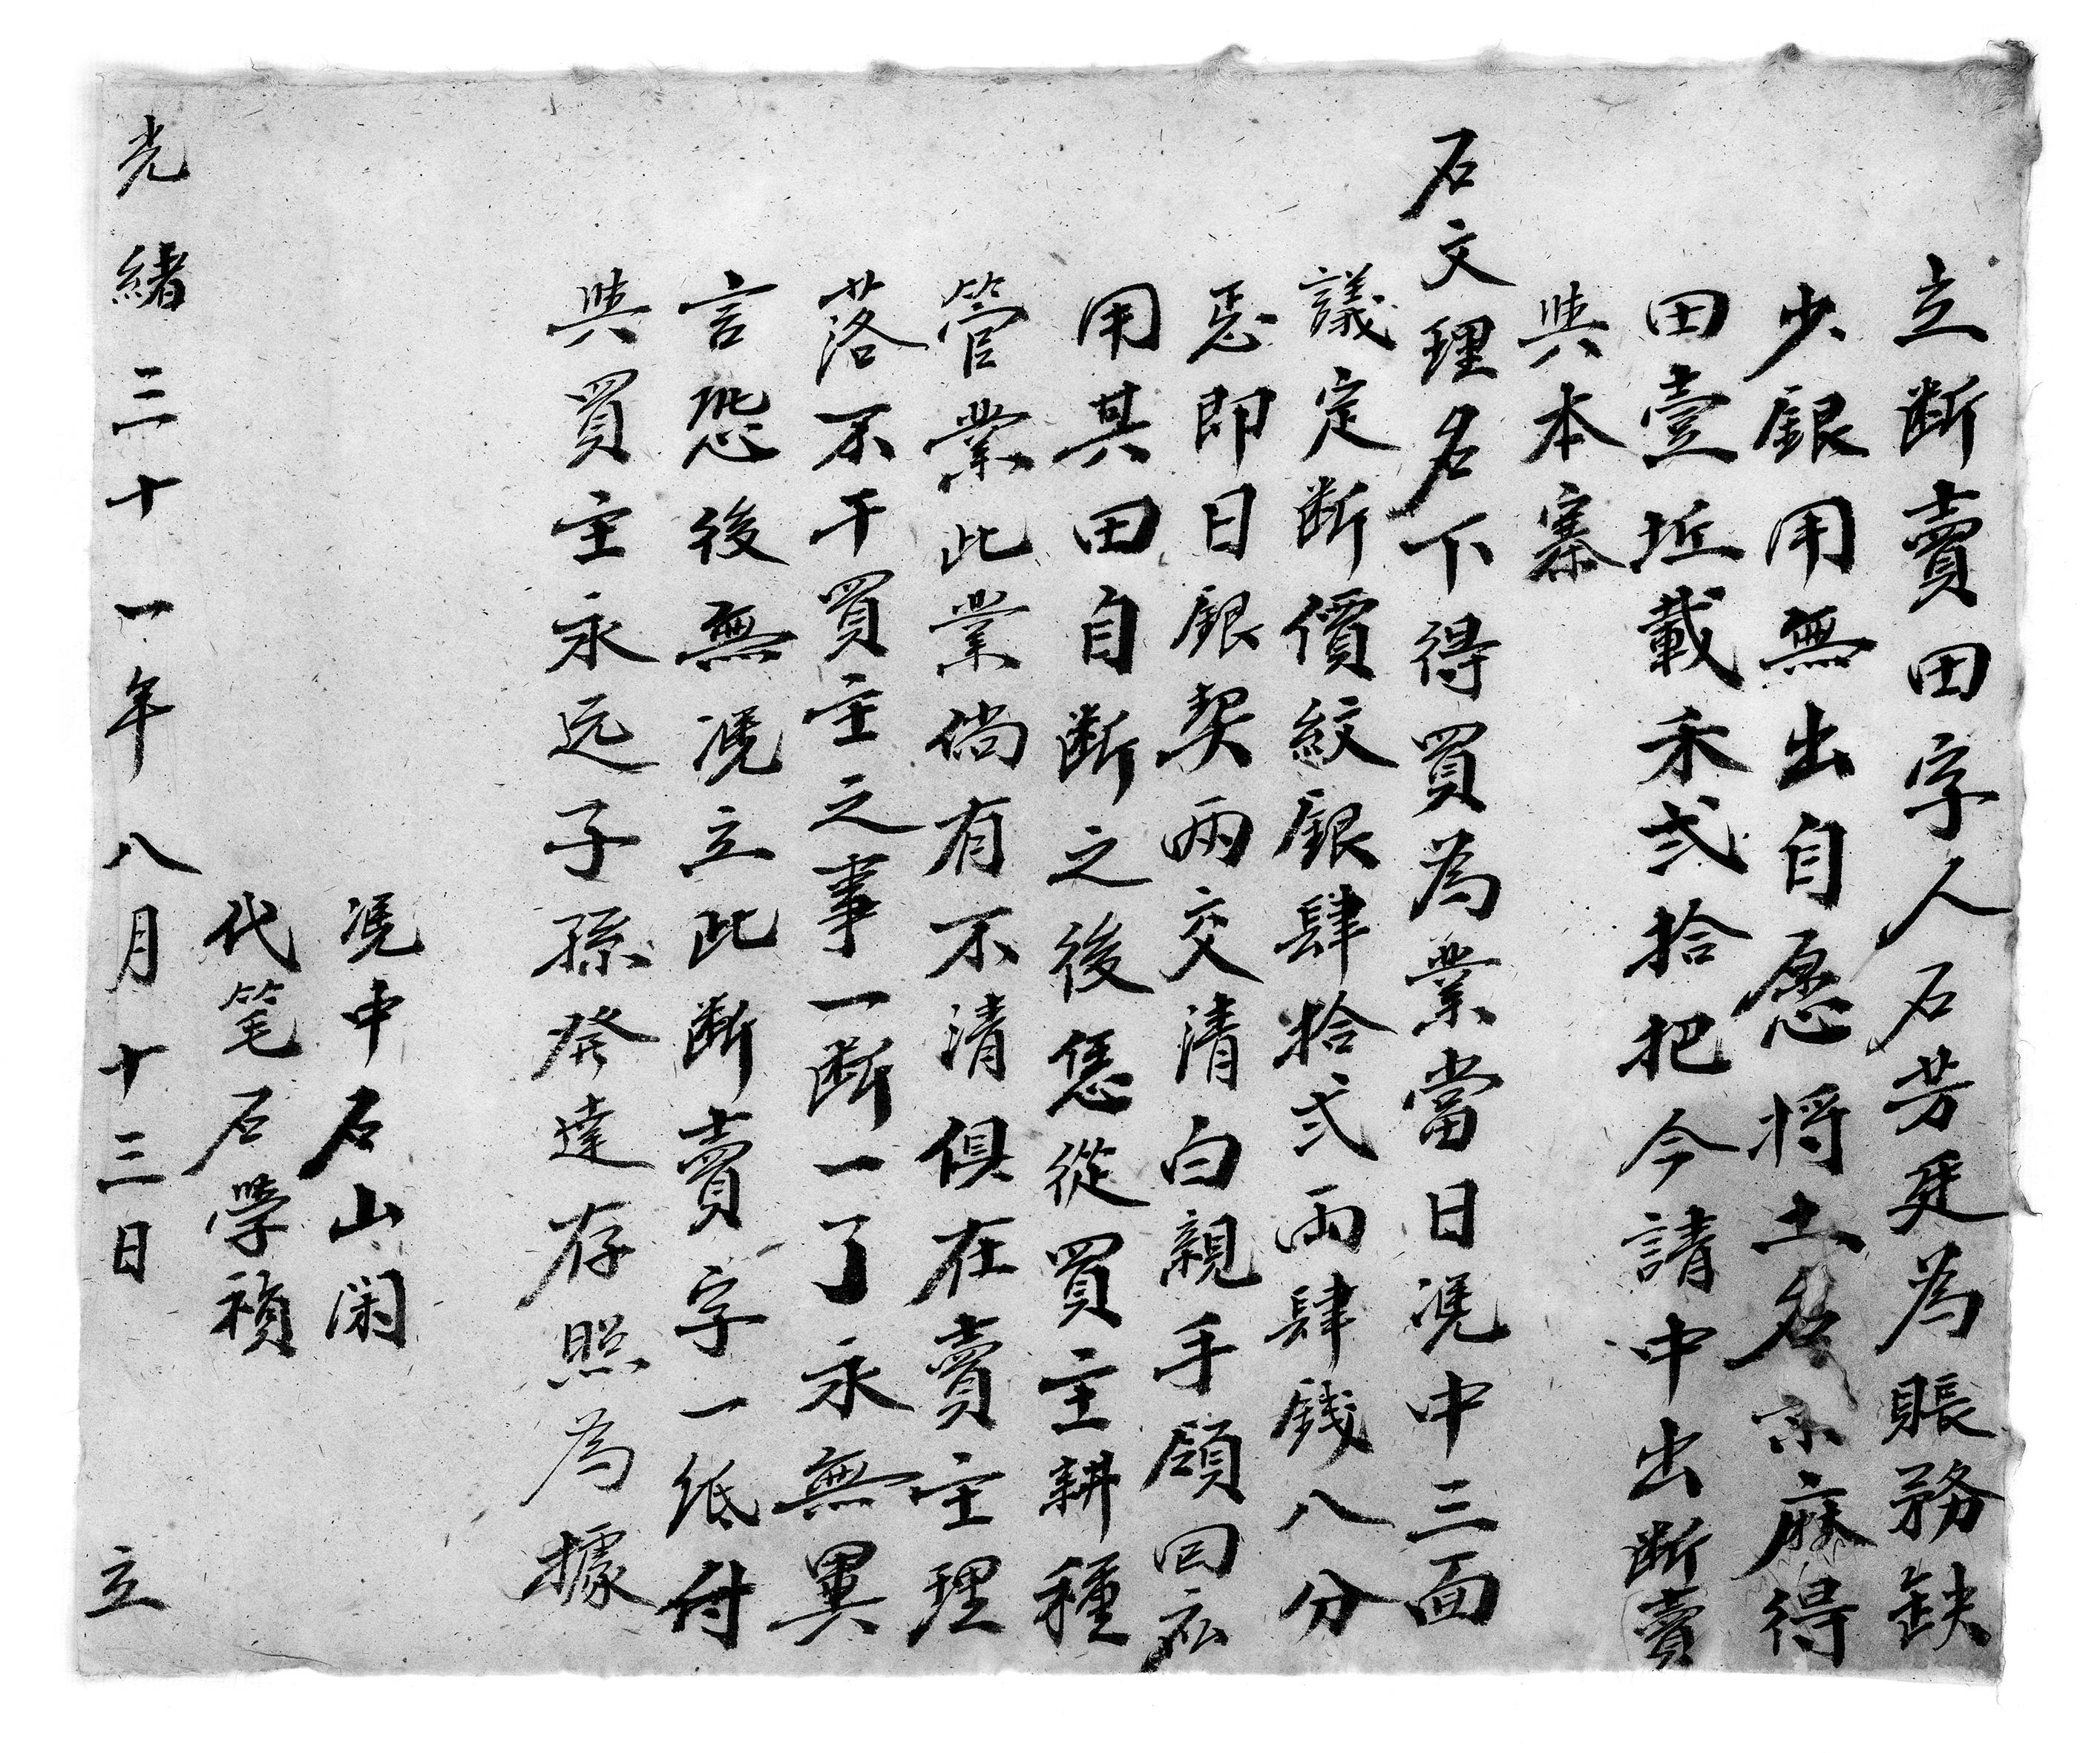 立断賣田字人石芳廷為賬務缺
少銀用無出自愿将土名宗麻得
田壹坵載禾弍拾把今請中出断賣
與本寨
石文理名下得買為業當日凴中三面
議定断價紋銀肆拾弍両肆錢八分
惡即日銀契兩交清白親手領回応
用其田自断之後恁從買主耕種
管業此業倘有不清俱在賣主理
落不干買主之事一断一了永無異
言恐後無凴立此断賣字一紙付
與買主永远子孫癸達存照為據
凴中石山閑
代笔石學禎
光緒三十一年八月十三日立